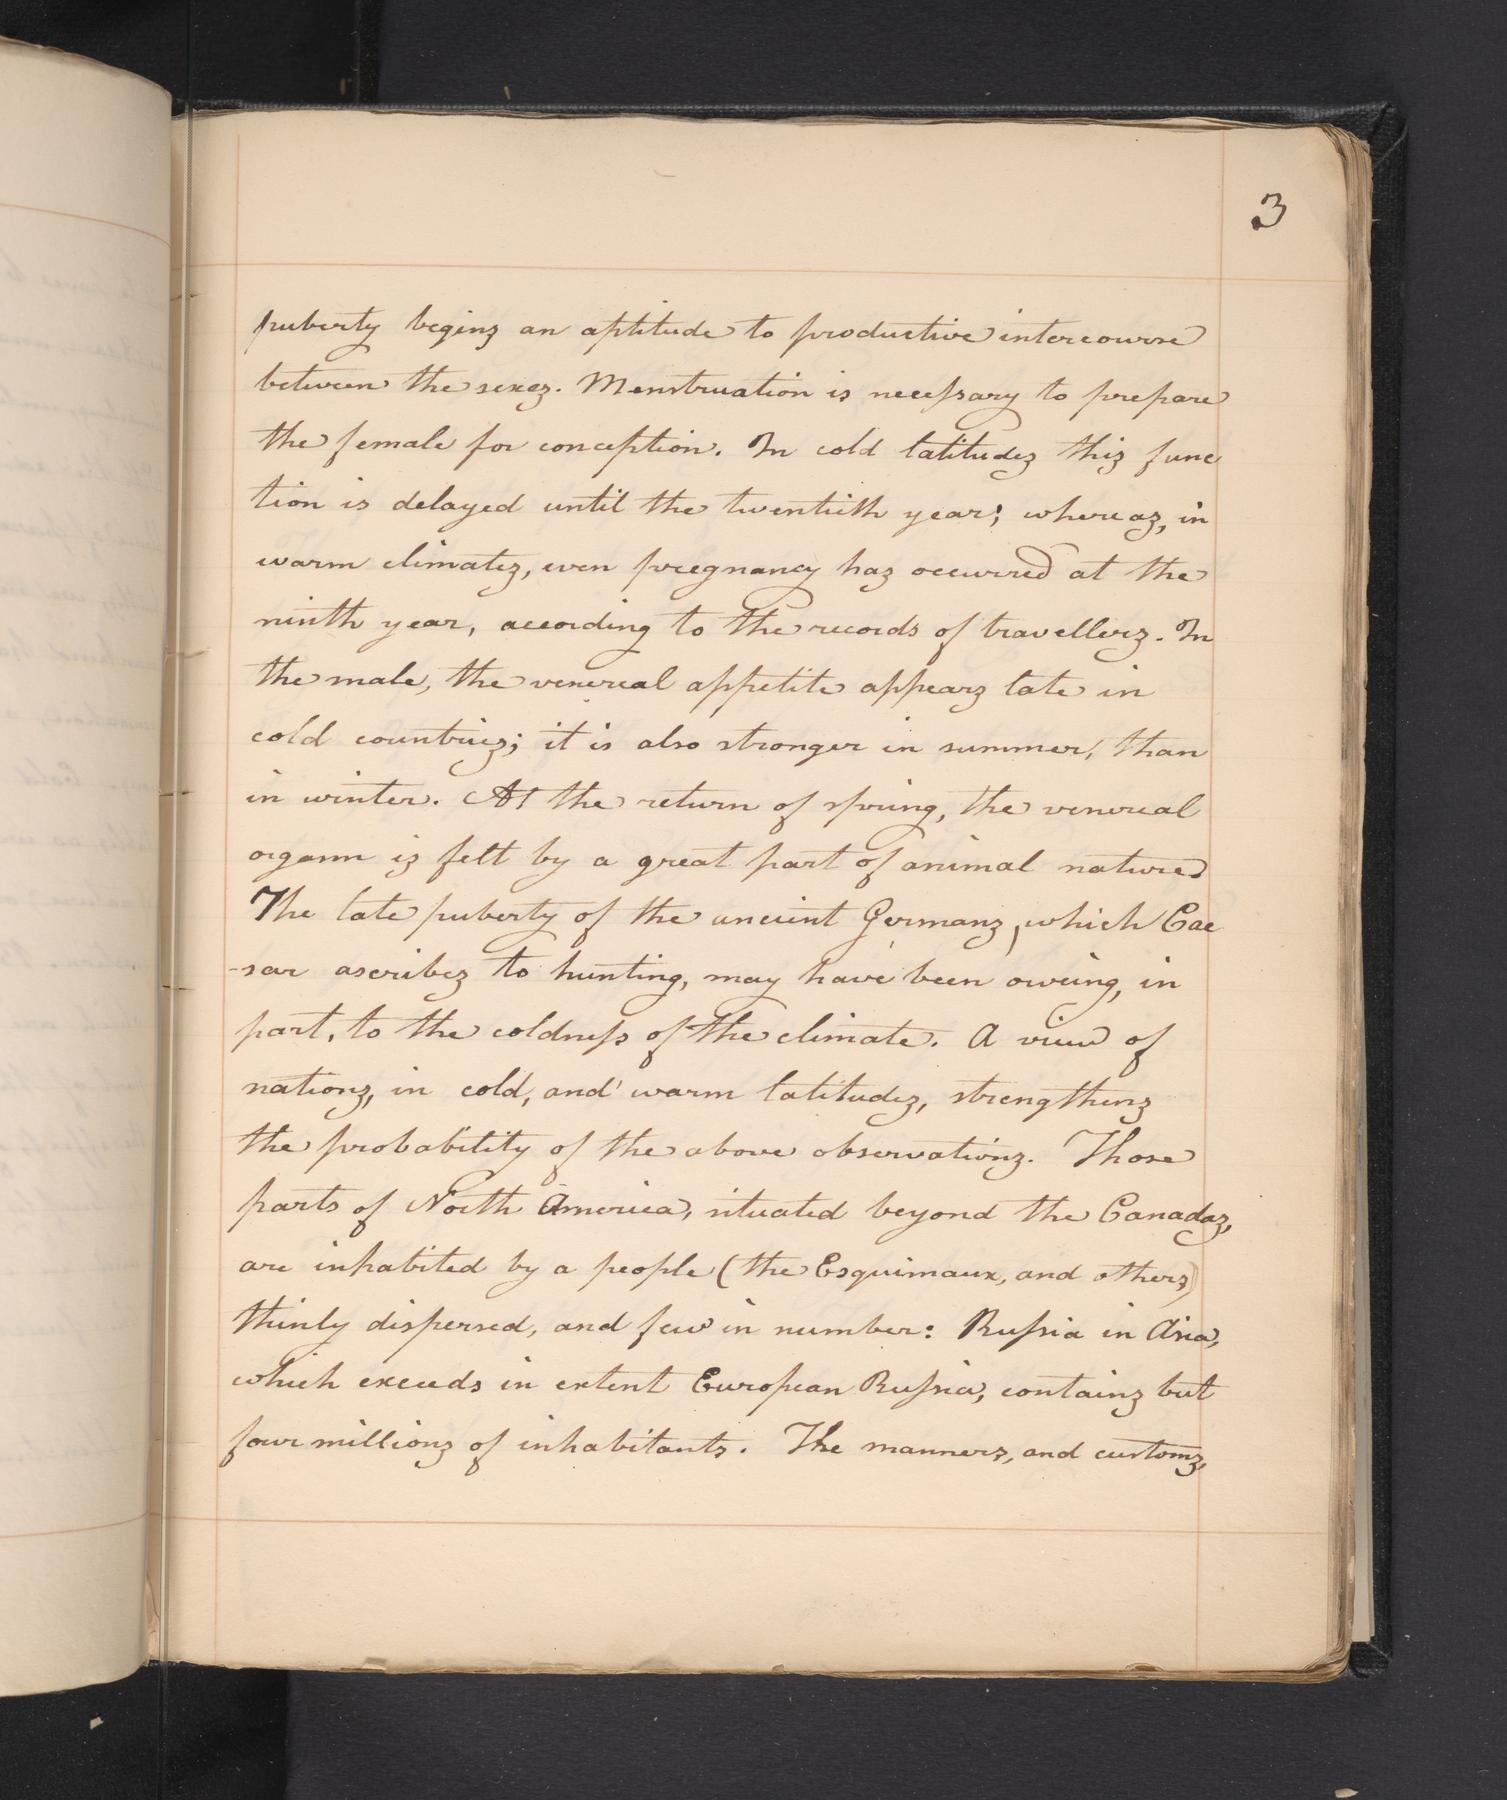 3
puberty begins an aptitude to productive intercourse
between the sexes. Menstruation is necessary to prepare
the female for conception. In cold latitudes this func
tion is delayed until the twentieth year; whereas, in
warm climates, even pregnancy has occurred at the
ninth year, according to the records of travellers. In
the male, the venereal appetite appears late in
cold countries; it is also stronger in summer, than
in winter. At the return of spring, the venereal
orgasm is felt by a great part of animal nature
The late puberty of the ancient Germans, which Cae
-sar ascribes to hunting, may have been oweing, in
part, to the coldness of the climate. A view of
nations, in cold, and warm latitudes, strengthens
the probability of the above observations. Those
parts of North America, situated beyond the Canadas,
are inhabited by a people (the Esquimaux, and others)
thinly dispersed, and few in number: Russia in Asia,
which exceeds in extent European Russia, contains but
four millions of inhabitants. The manners, and customs,